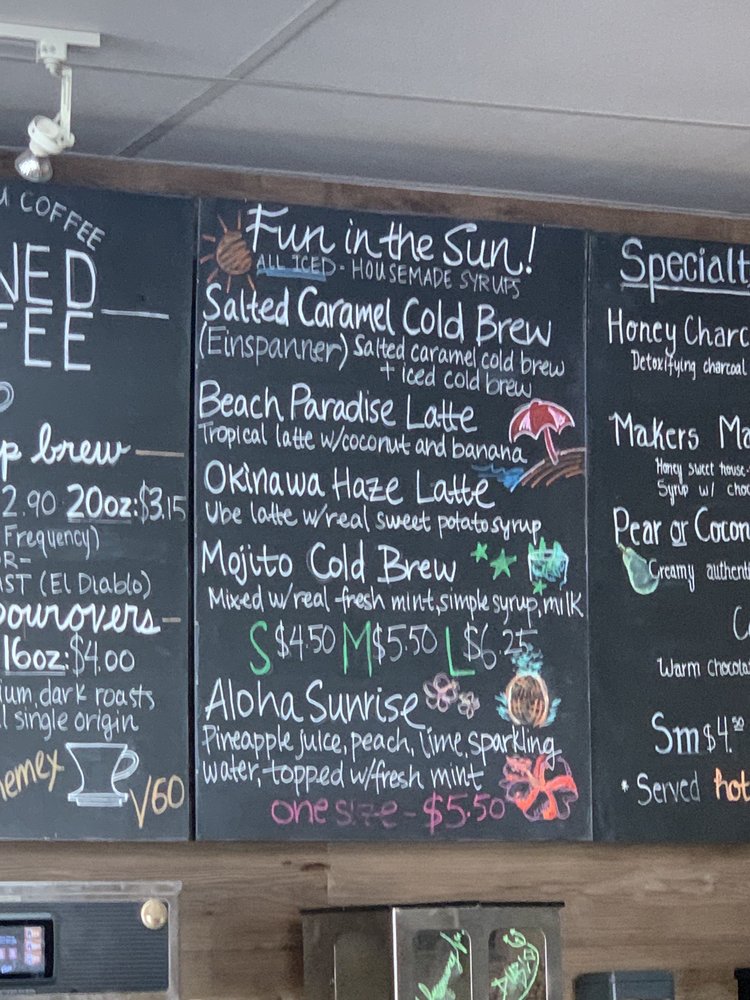 COFFEE
NED
FEE
brew
2.90 20oz: $3.15
Frequency)
-OR-
(El Diablo)
pourovers
16oz: $4.00
dark roasts
single origin
V60
Fun in the Sun!
ALL ICED - HOUSEMADE SYRUPS
Salted Caramel Cold Brew
(Einspanner) Salted caramel cold brew
+ iced cold brew
Beach Paradise Latte
Tropical latte w/coconut and banana
Okinawa Haze Latte
Ube latte w/real sweet potato syrup
Mojito Cold Brew
Mixed w/real fresh mint, simple syrup, milk
S $4.50 M $5.50 L $6.25
Aloha Sunrise
Pineapple juice, peach, lime, sparkling
water, topped w/fresh mint
one size - $5.50
Specialt
Honey Charc
Detoxifying charcoal
Makers Ma
Honey sweet house-
Syrup w/ choc
Pear or Cocon
Creamy authenti
Warm chocola
Sm $4.50
* Served hot